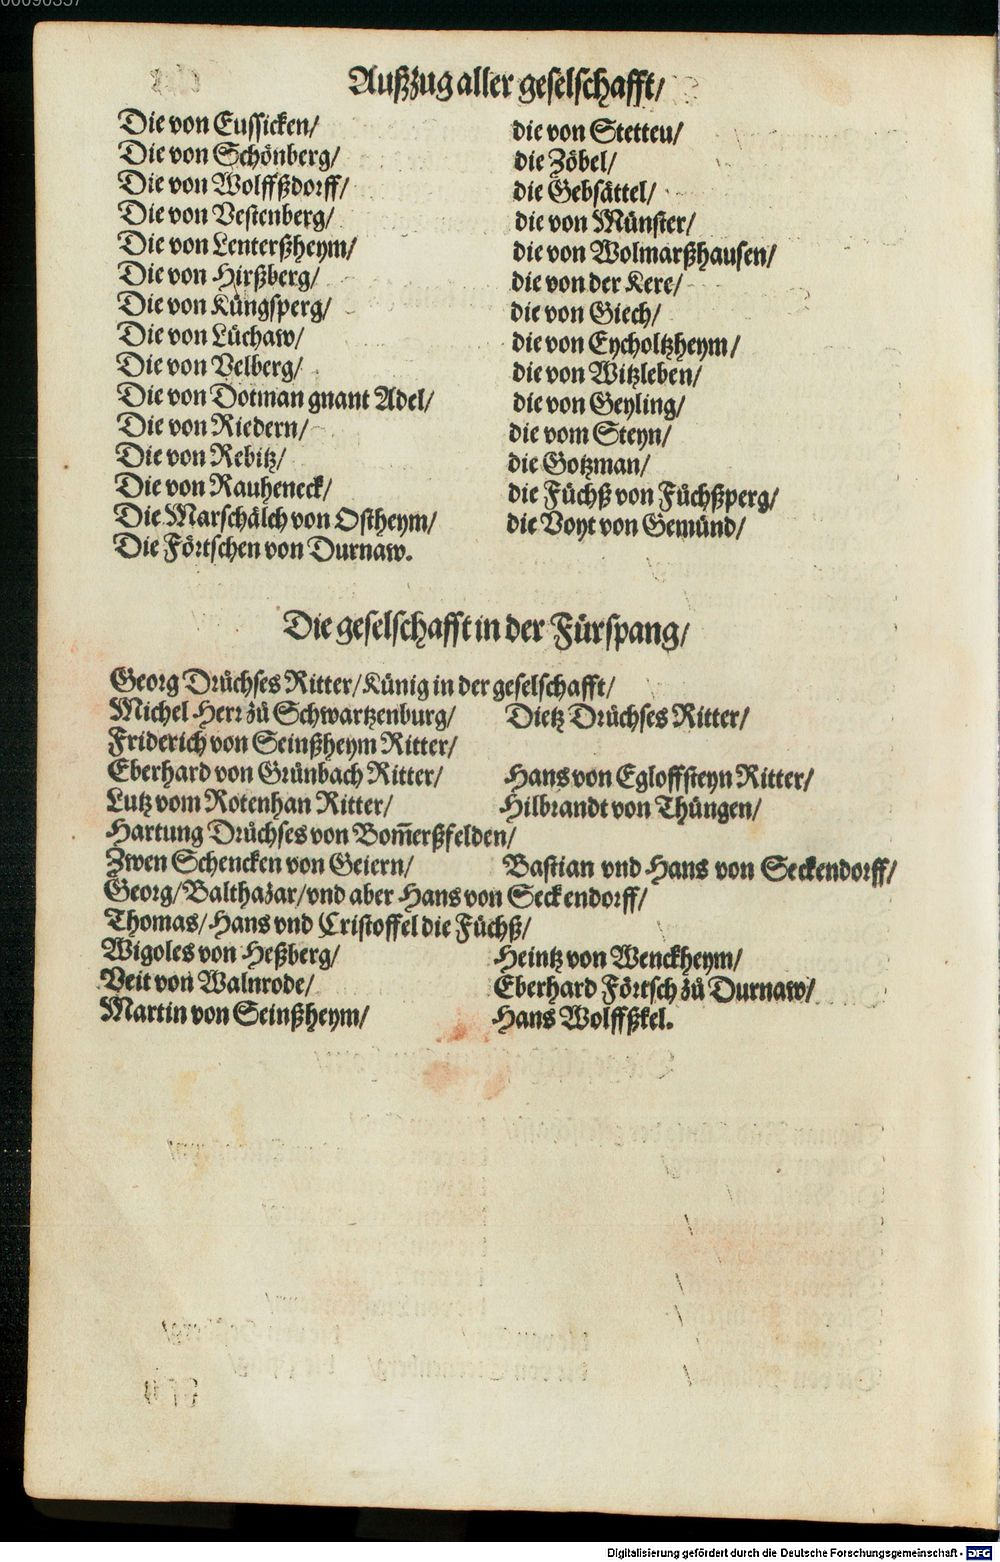 Außzug aller geselschafft/
Die von Eussicken/
Die von Schönberg/
Die von Wolffßdorff/
Die von Vestenberg/
Die von Lenterßheym/
Die von Hirßberg/
Die von Küngsperg/
Die von Lüchaw/
Die von Velberg/
Die von Dotman gnant Adel/
Die von Riedern/
Die von Rebitz/
Die von Rauheneck/
Die Marschälch von Ostheym/
Die Förtschen von Durnaw.
die von Stetteu/
die Zöbel/
die Gebsättel/
die von Münster/
die von Wolmarßhausen/
die von der Kere/
die von Giech/
die von Eycholtzheym/
die von Witzleben/
die von Geyling/
die vom Steyn/
die Gotzman/
die Füchß von Füchßperg/
die Voyt von Gemünd/
Die geselschafft in der Fürspang/
Georg Drüchses Ritter/ Künig in der geselschafft/
Michel Herr zů Schwartzenburg/ Dietz Drüchses Ritter/
Friderich von Seinßheym Ritter/
Eberhard von Grünbach Ritter/ Hans von Egloffsteyn Ritter/
Lutz vom Rotenhan Ritter/ Hilbrandt von Thüngen/
Hartung Drüchses von Bom̃erßfelden/
Zwen Schencken von Geiern/ Bastian vnd Hans von Seckendorff/
Georg/ Balthazar/ vnd aber Hans von Seckendorff/
Thomas/ Hans vnd Cristoffel die Füchß/
Wigoles von Heßberg/ Heintz von Wenckheym/
Veit von Walnrode/ Eberhard Förtsch zů Durnaw/
Martin von Seinßheym/ Hans Wolffßkel.
Digitalisierung gefördert durch die Deutsche Forschungsgemeinschaft - DFG